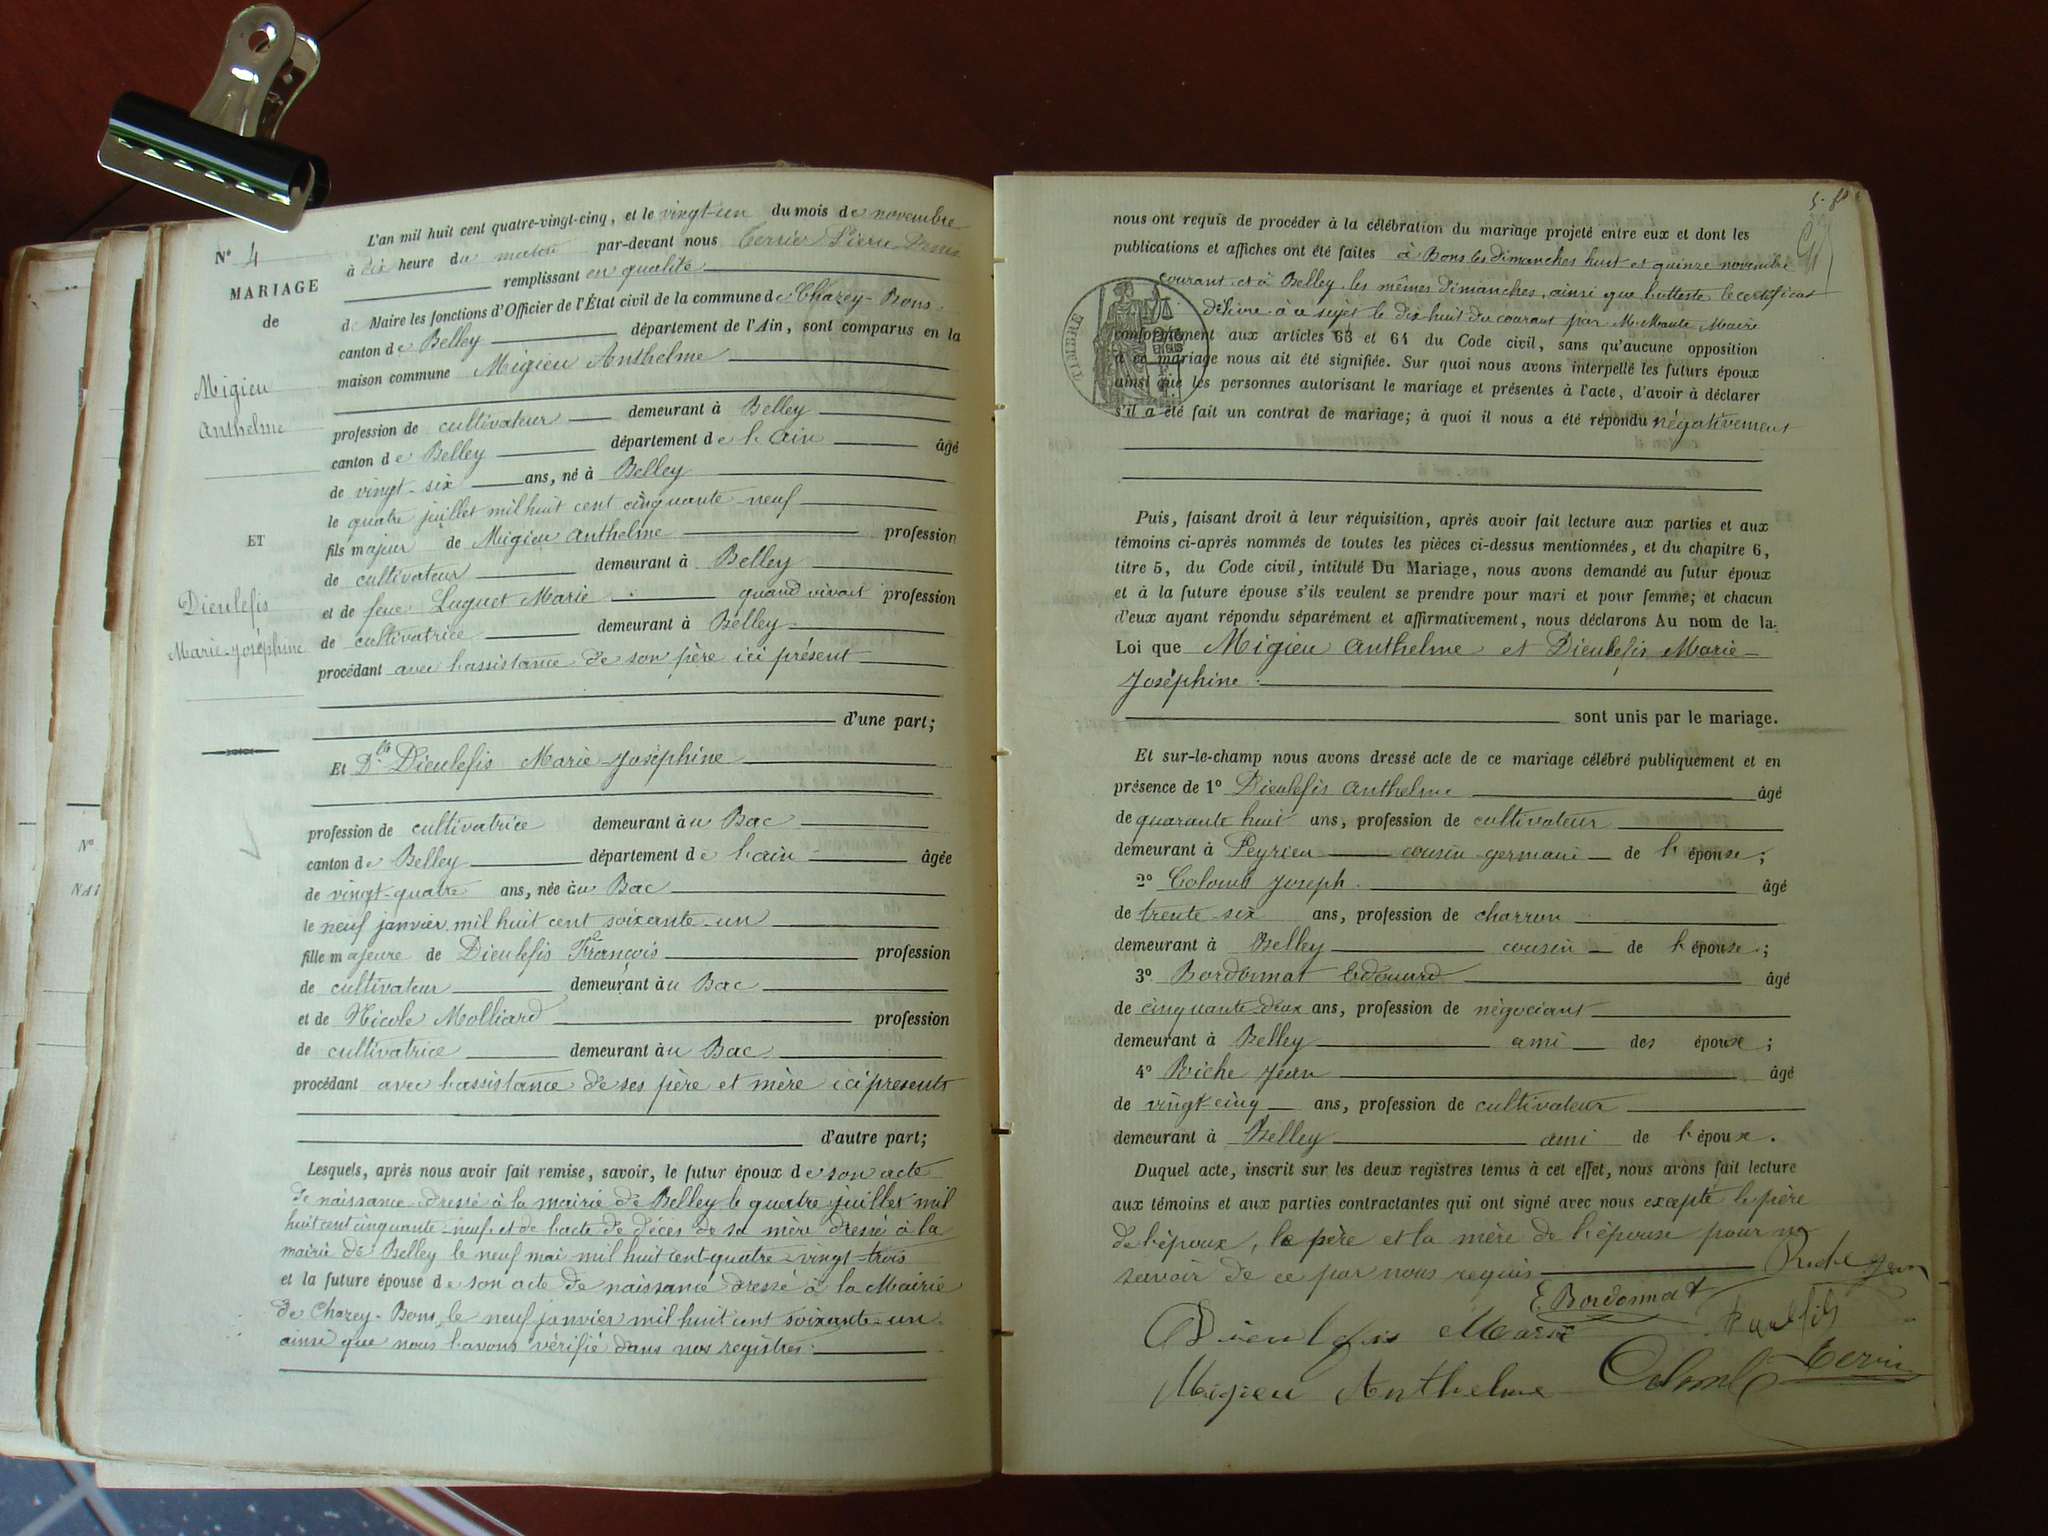 N° 4
MARIAGE
de
Migieu
Anthelme
ET
Dieulefis
Marie-Joséphine
L'an mil huit cent quatre-vingt-cinq, et le vingt-un du mois de novembre
à dix heure du matin par-devant nous Terrier Pierre
remplissant en qualité
de Maire les fonctions d'Officier de l'État civil de la commune de Chazey-Bons
canton de Belley département de l'Ain, sont comparus en la
maison commune Migieu Anthelme
profession de cultivateur demeurant à Belley
canton de Belley département de l'ain âgé
de vingt-six ans, né à Belley
le quatre juillet mil huit cent cinquante-neuf
fils majeur de Migieu Anthelme profession
de cultivateur demeurant à Belley
et de feue Luguet Marie quand vivait profession
de cultivatrice demeurant à Belley
procédant avec l'assistance de son père ici présent
d'une part;
Et Dlle Dieulefis Marie Joséphine
profession de cultivatrice demeurant au Bac
canton de Belley département de l'ain âgée
de vingt-quatre ans, née au Bac
le neuf janvier mil huit cent soixante-un
fille majeure de Dieulefis François profession
de cultivateur demeurant au Bac
et de Nicole Molliard profession
de cultivatrice demeurant au Bac
procédant avec l'assistance de ses père et mère ici présents
d'autre part;
Lesquels, après nous avoir fait remise, savoir, le futur époux de son acte
de naissance dressé à la mairie de Belley le quatre juillet mil
huit cent cinquante-neuf et de l'acte de décès de sa mère dressé à la
mairie de Belley le neuf mai mil huit cent quatre-vingt-trois
et la future épouse de son acte de naissance dressé à la Mairie
de Chazey-Bons, le neuf janvier mil huit cent soixante-un
ainsi que nous l'avons vérifié dans nos registres.
nous ont requis de procéder à la célébration du mariage projeté entre eux et dont les
publications et affiches ont été faites à Bons les dimanches huit et quinze novembre
courant et à Belley les mêmes dimanches, ainsi que l'atteste le certificat
délivré à ce sujet le dix-huit du courant par Mr Maire
TIMBRE
conformément aux articles 63 et 64 du Code civil, sans qu'aucune opposition
à ce mariage nous ait été signifiée. Sur quoi nous avons interpellé les futurs époux
ainsi que les personnes autorisant le mariage et présentes à l'acte, d'avoir à déclarer
s'il a été fait un contrat de mariage; à quoi il nous a été répondu négativement
Puis, faisant droit à leur réquisition, après avoir fait lecture aux parties et aux
témoins ci-après nommés de toutes les pièces ci-dessus mentionnées, et du chapitre 6,
titre 5, du Code civil, intitulé Du Mariage, nous avons demandé au futur époux
et à la future épouse s'ils veulent se prendre pour mari et pour femme; et chacun
d'eux ayant répondu séparément et affirmativement, nous déclarons Au nom de la
Loi que Migieu Anthelme et Dieulefis Marie-
Joséphine
sont unis par le mariage.
Et sur-le-champ nous avons dressé acte de ce mariage célébré publiquement et en
présence de 1° Dieulefis Anthelme âgé
de quarante huit ans, profession de cultivateur
demeurant à Peyrieu cousin germain de l'épouse;
2° Colomb Joseph âgé
de trente-six ans, profession de charron
demeurant à Belley cousin de l'épouse;
3° Bordonnat Edouard âgé
de cinquante-deux ans, profession de négociant
demeurant à Belley ami des époux;
4° Riche Jean âgé
de vingt-cinq ans, profession de cultivateur
demeurant à Belley ami de l'époux.
Duquel acte, inscrit sur les deux registres tenus à cet effet, nous avons fait lecture
aux témoins et aux parties contractantes qui ont signé avec nous excepté le père
de l'époux, le père et la mère de l'épouse pour ne
savoir de ce par nous requis
Riche Jean
E. Bordonnat
Dieulefis Marie
Migieu Anthelme
Colomb